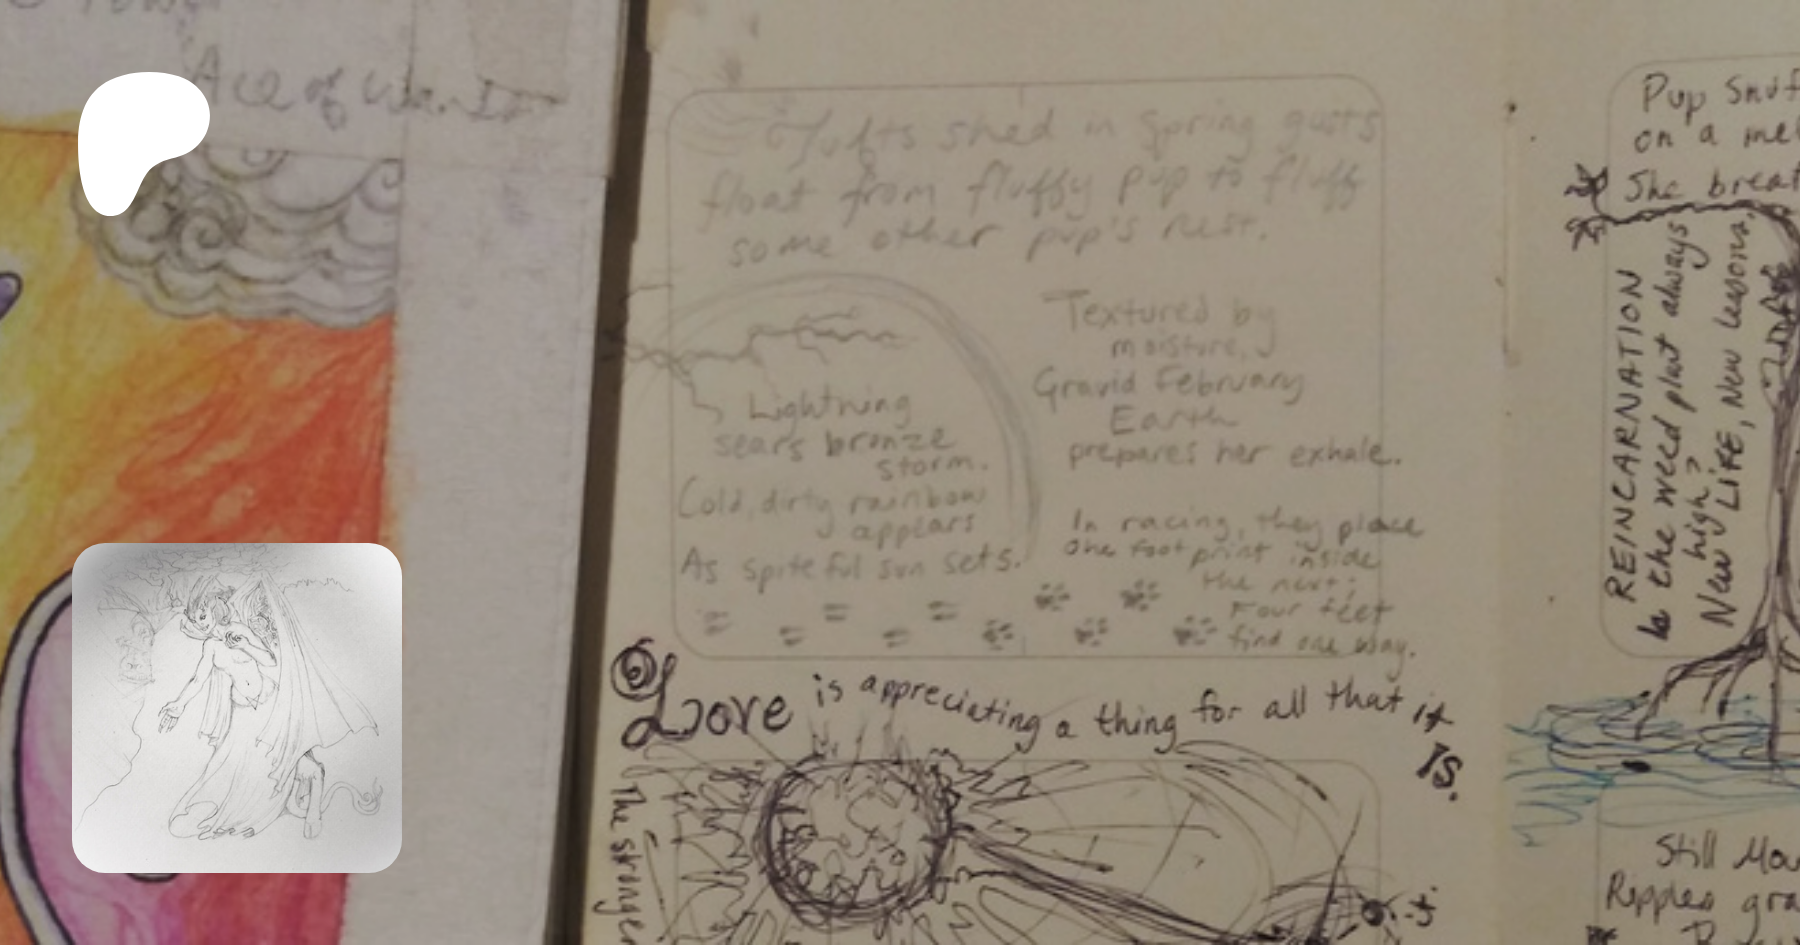 Ace of Wands
Tufts shed in Spring gusts
float from fluffy pup to fluff
some other pup's nest.
Lightning
sears bronze
storm.
Cold, dirty rainbow
appears
As spiteful sun sets.
Textured by
moisture,
Gravid February
Earth
prepares her exhale.
In racing, they place
one foot print inside
the next;
Four feet
find one way.
Love is appreciating a thing for all that it
is.
The stronger
Pup Snuf
on a mel
She breat
REINCARNATION
Is the weed plant always
high?
New LIFE, New Lessons.
Still Mou
Ripples gra